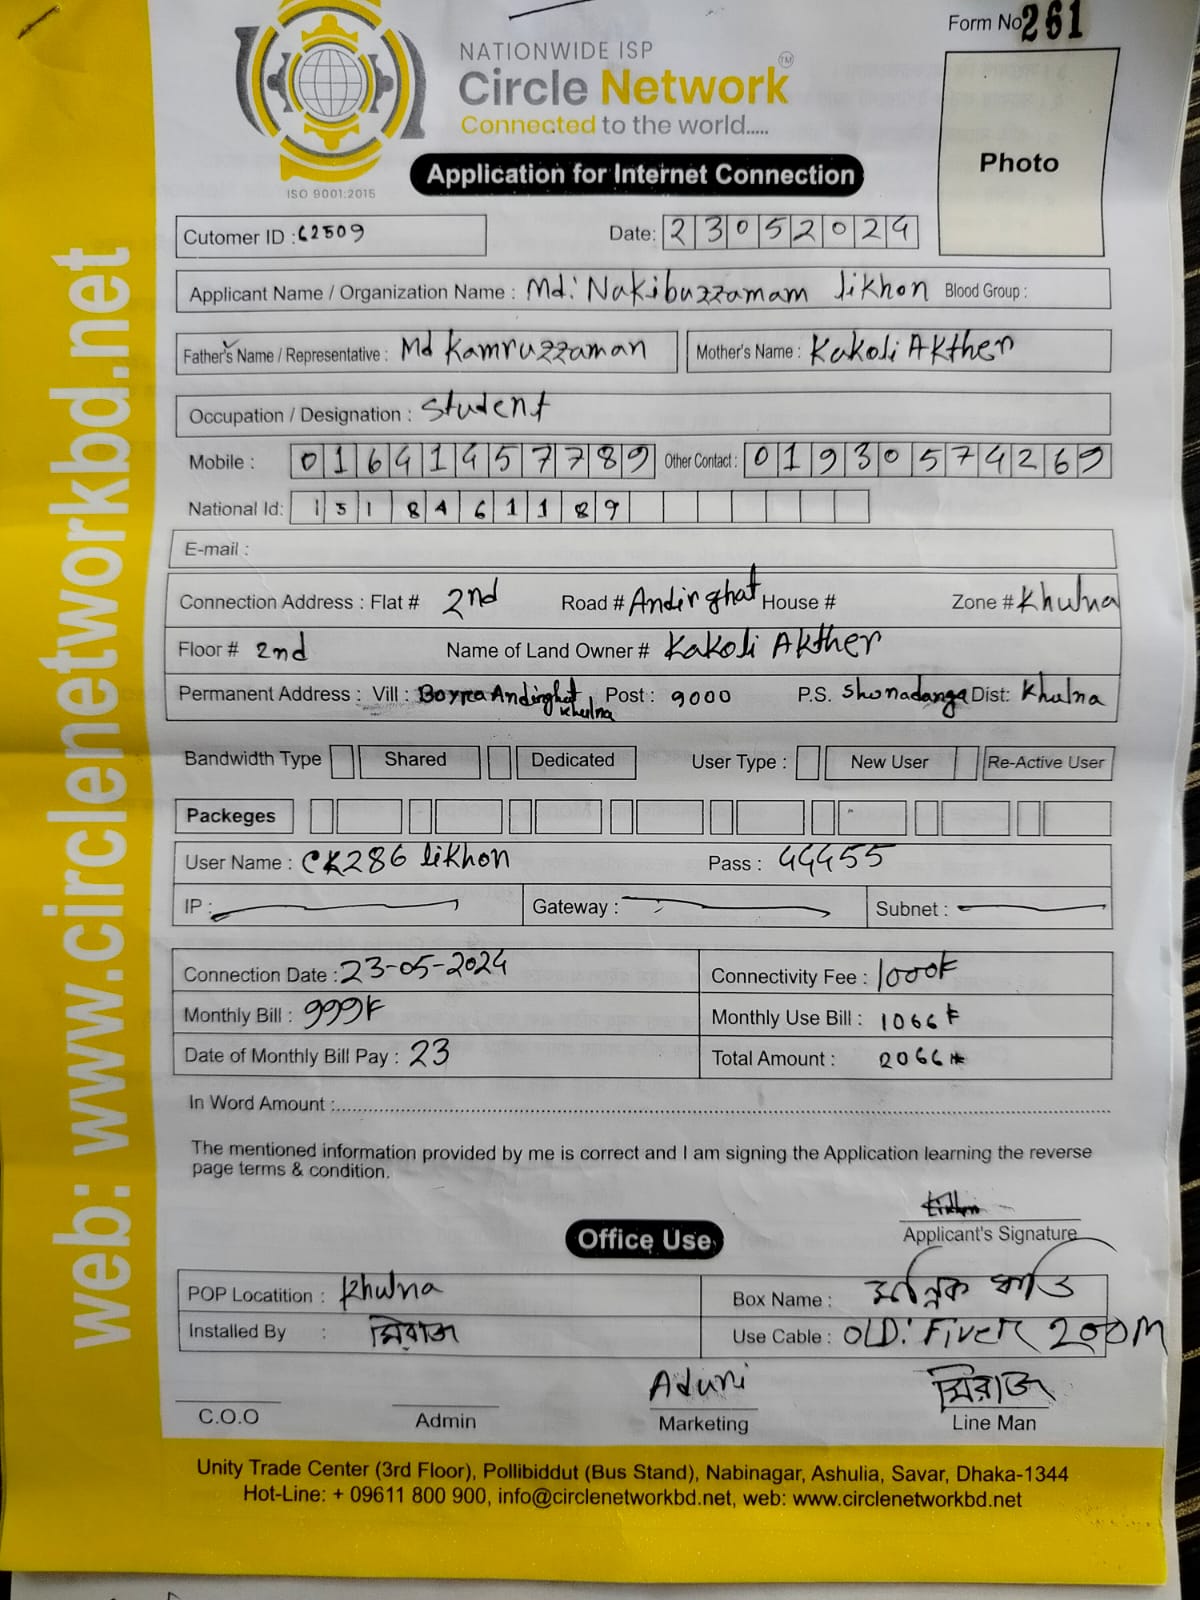 Form No 261
NATIONWIDE ISP
Circle Network TM
Connected to the world.....
ISO 9001:2015
Application for Internet Connection
Photo
Cutomer ID : 62509 Date: 23052024
Applicant Name / Organization Name : Md: Nakibuzzamam likhon Blood Group :
Father's Name / Representative : Md Kamruzzaman Mother's Name : Kakoli Akther
Occupation / Designation : Student
Mobile : 01641457789 Other Contact : 01930574269
National Id: 1518461189
E-mail :
Connection Address : Flat # 2nd Road # Andirghat House # Zone # Khulna
Floor # 2nd Name of Land Owner # Kakoli Akther
Permanent Address : Vill : Boyra Andirghat Khulna Post : 9000 P.S. Shonadanga Dist: Khulna
Bandwidth Type Shared Dedicated User Type : New User Re-Active User
Packeges
User Name : CK286 likhon Pass : 44455
IP : Gateway : Subnet :
Connection Date : 23-05-2024 Connectivity Fee : 1000৳
Monthly Bill : 999৳ Monthly Use Bill : 1066৳
Date of Monthly Bill Pay : 23 Total Amount : 2066
In Word Amount :
The mentioned information provided by me is correct and I am signing the Application learning the reverse
page terms & condition.
Likhon
Applicant's Signature
Office Use
POP Locatition : Khulna Box Name :
Installed By : মিরাজ Use Cable : OLD: Fiver 200M
C.O.O Admin Marketing মিরাজ Line Man
Unity Trade Center (3rd Floor), Pollibiddut (Bus Stand), Nabinagar, Ashulia, Savar, Dhaka-1344
Hot-Line: + 09611 800 900, info@circlenetworkbd.net, web: www.circlenetworkbd.net
web: www.circlenetworkbd.net